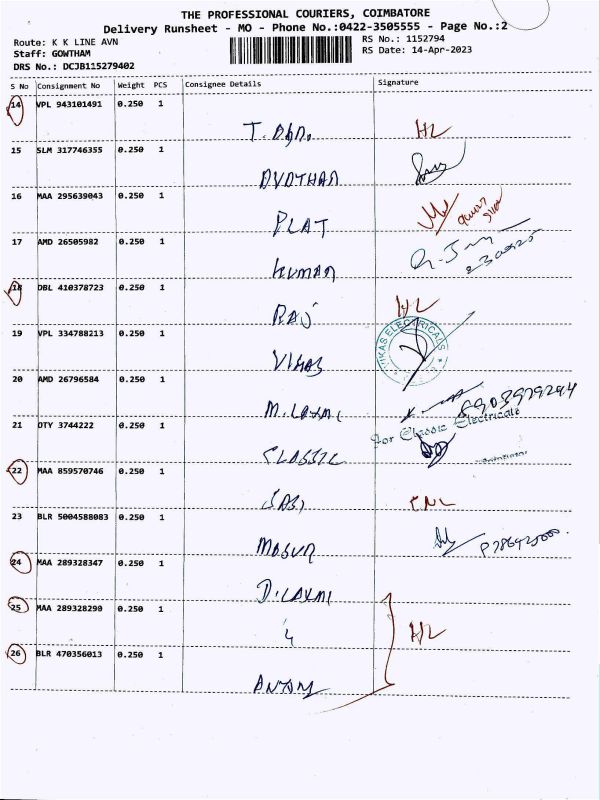 THE PROFESSIONAL COURIERS, COIMBATORE
Delivery Runsheet - MO - Phone No.:0422-3505555 - Page No.:2
Route: K K LINE AVN
RS No.: 1152794
Staff: GOWTHAM
RS Date: 14-Apr-2023
DRS No.: DCJB115279402
S No Consignment No Weight PCS Consignee Details Signature
14 VPL 943101491 0.250 1
HL
15 SLM 317746355 0.250 1
16 MAA 295639043 0.250 1
PLAT
17 AMD 26505982 0.250 1
KUMAR
18 DBL 410378723 0.250 1
RAJ HL
19 VPL 334788213 0.250 1
VIKAS VIKAS ELECTRICALS
20 AMD 26796584 0.250 1
M. LAXMI
21 OTY 3744222 0.250 1
For Classic Electricals
CLASSIC
22 MAA 859570746 0.250 1
SASI CNL
23 BLR 5004588083 0.250 1
24 MAA 289328347 0.250 1
D. LAXMI
25 MAA 289328290 0.250 1
HL
26 BLR 470356013 0.250 1